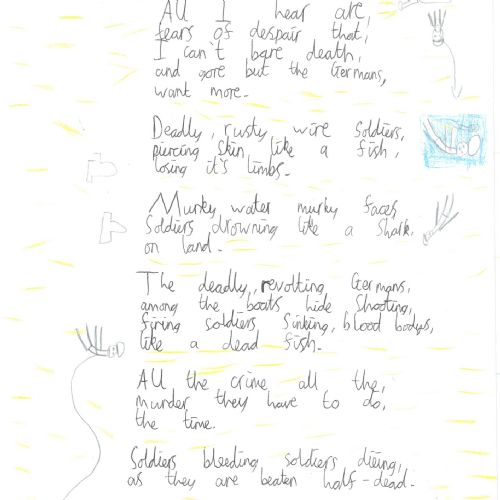 All I hear are,
fears of despair that,
I can't bare death,
and gore but the Germans,
want more.
Deadly, rusty wire soldiers,
piercing skin like a fish,
losing it's limbs.
Murky water murky faces
Soldiers drowning like a shark,
on land.
The deadly, revolting Germans,
among the boats hide shooting,
firing soldiers sinking, blood bodys,
like a dead fish.
All the crime all the,
murder they have to do,
the time.
Soldiers bleeding soldiers dieing,
as they are beaten half-dead.